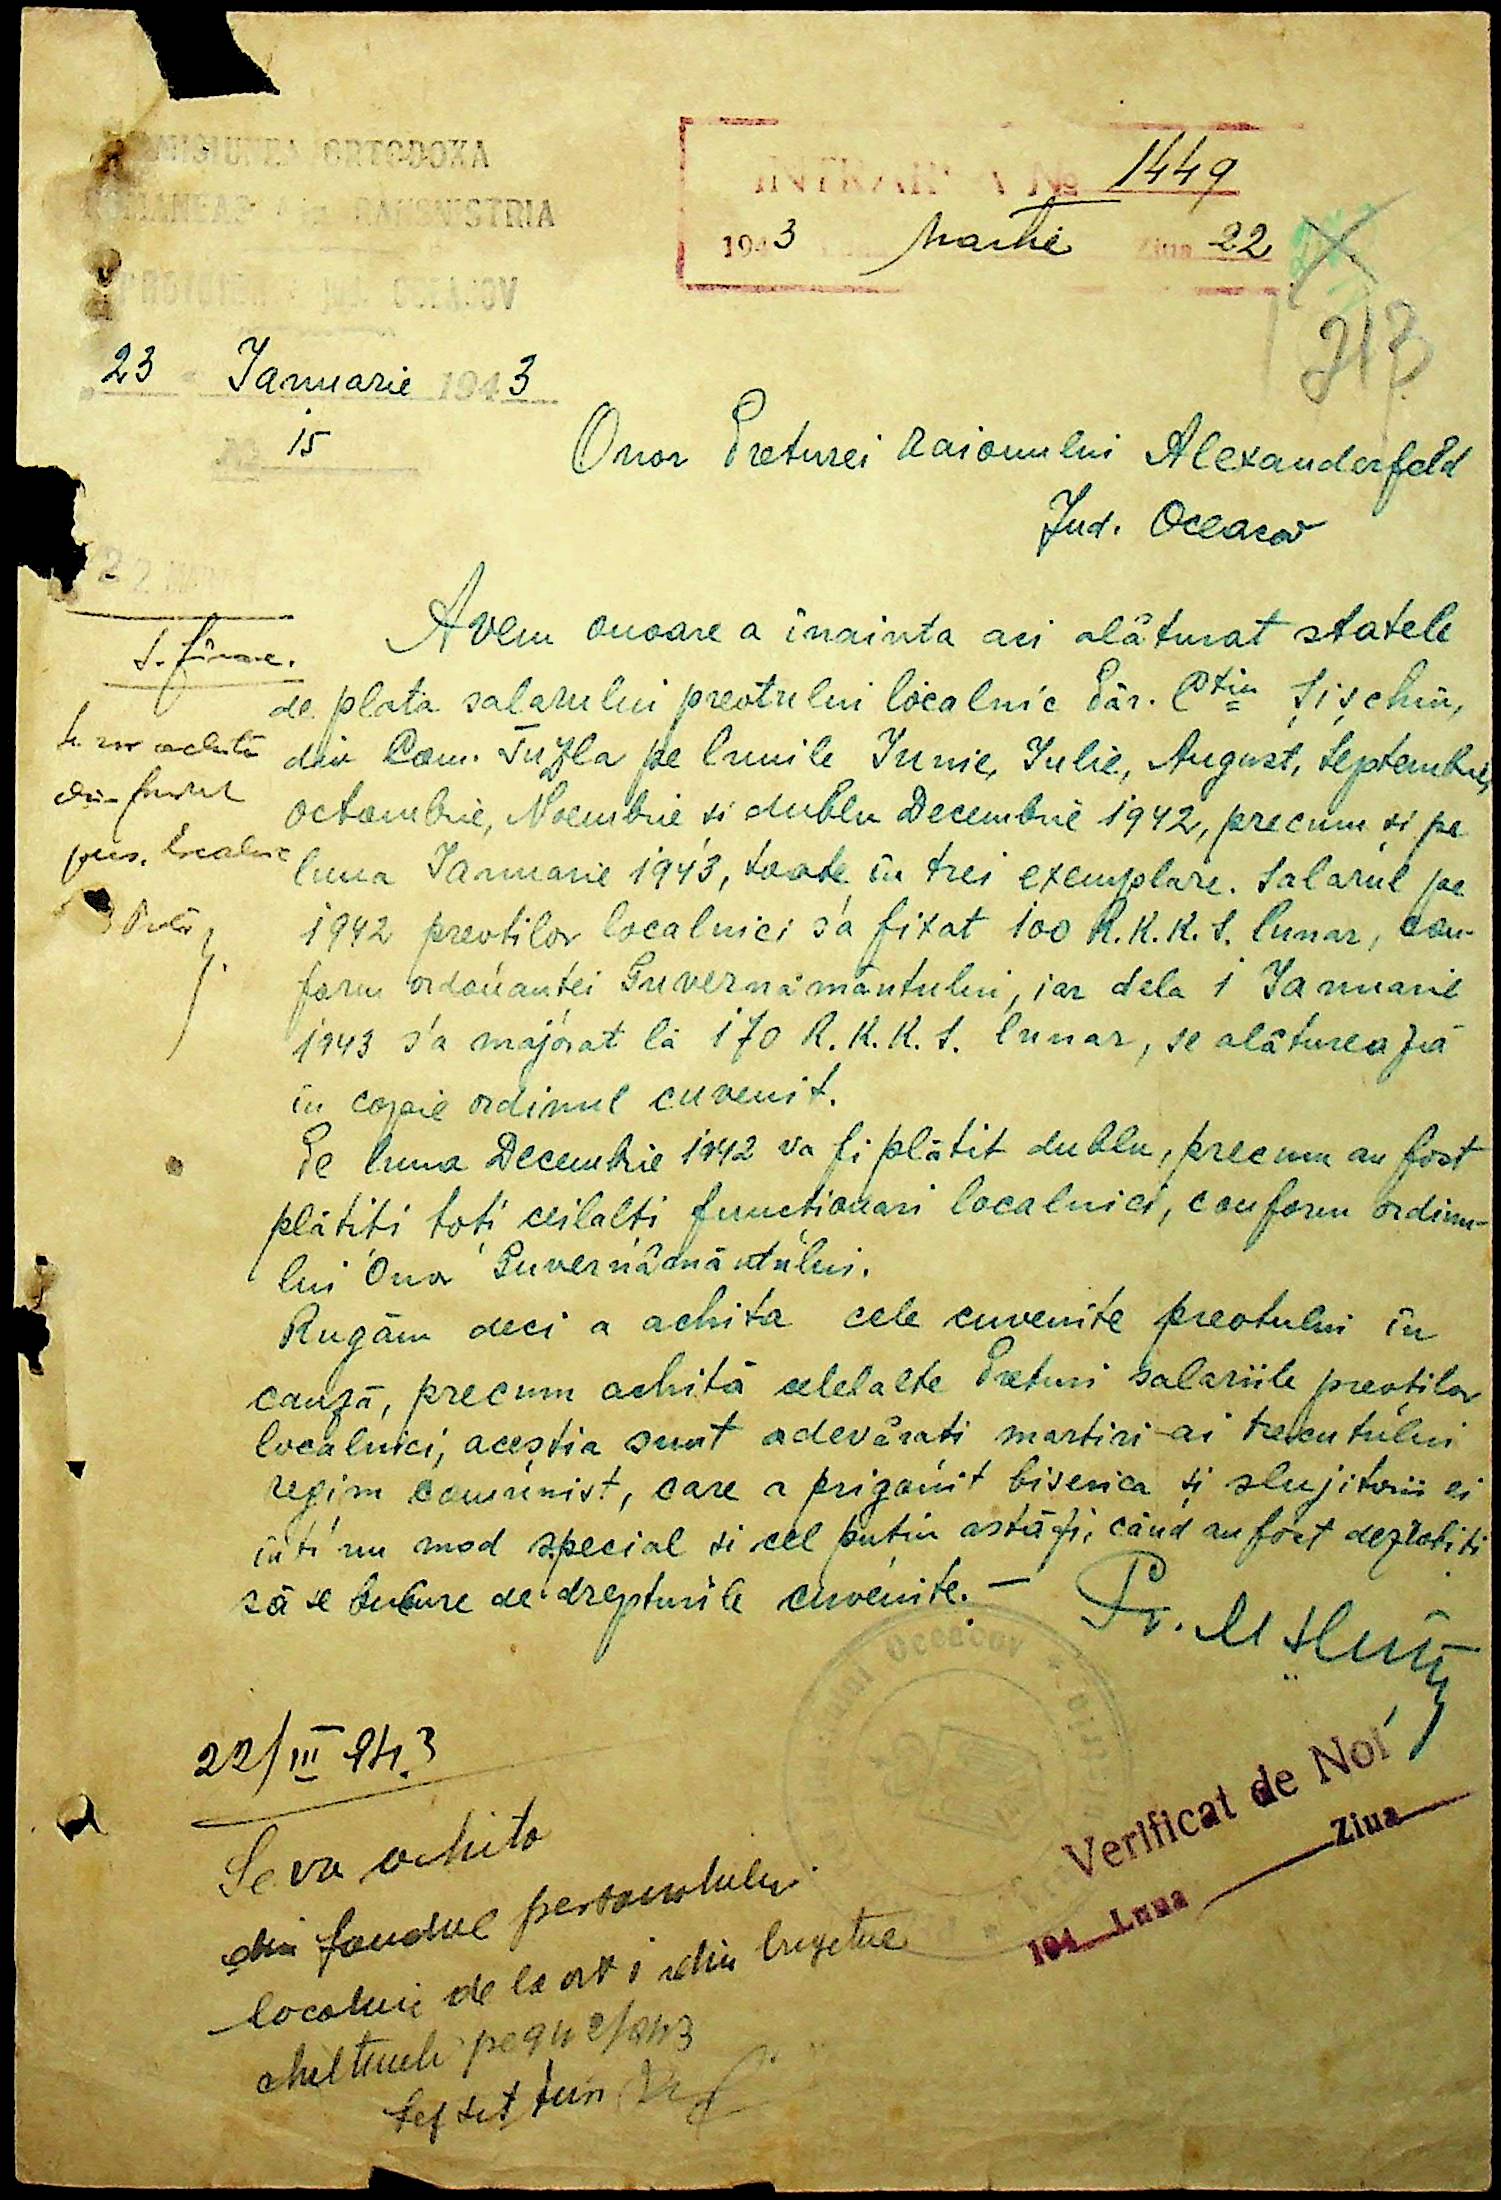 MISIUNEA ORTODOXA
ROMANEASCA in TRANSNISTRIA
PROTOIERIA Jud. OCEACOV
INTRARE No 1449
1943 Martie Ziua 22
213
"23" Ianuarie 1943
No 15
Onor Preturei Raionului Alexanderfeld
Jud. Oceacov
22 MAR
S. finane.
Se vor achita
din fondul
pers. localnic
Avem onoare a înainta aci alăturat statele
de plata salarului preotului localnic Păr. Ctin Șișchin,
din Com. Tuzla pe lunile Iunie, Iulie, August, Septembrie,
Octombrie, Noembrie si dublu Decembrie 1942, precum și pe
luna Ianuarie 1943, toate în trei exemplare. Salarul pe
1942 preotilor localnici s'a fixat 100 R.K.K.S. lunar, con-
form ordonantei Guvernământului, iar dela 1 Ianuarie
1943 s'a majorat la 170 R.K.K.S. lunar, se alăturează
în copie ordinul cuvenit.
Pe luna Decembrie 1942 va fi plătit dublu, precum au fost
plătiți toți ceilalți funcționari localnici, conform ordinu-
lui Onor Guvernământului.
Rugăm deci a achita cele cuvenite preotului în
cauză, precum achită celelalte Preturi salariile preoților
localnici, aceștia sunt adevărati martiri ai trecutului
regim comunist, care a prigonit biserica și slujitorii ei
într'un mod special si cel puțin astăzi, când au fost dezrobiti
să se bucure de drepturile cuvenite. —
Pr. M
Oceacov
22/III 943
Se va achita
din fondul personalului
localnic de la art 1 din bugetul
cheltueli pe 942/943
Șef
Verificat de Noi
194 Luna Ziua